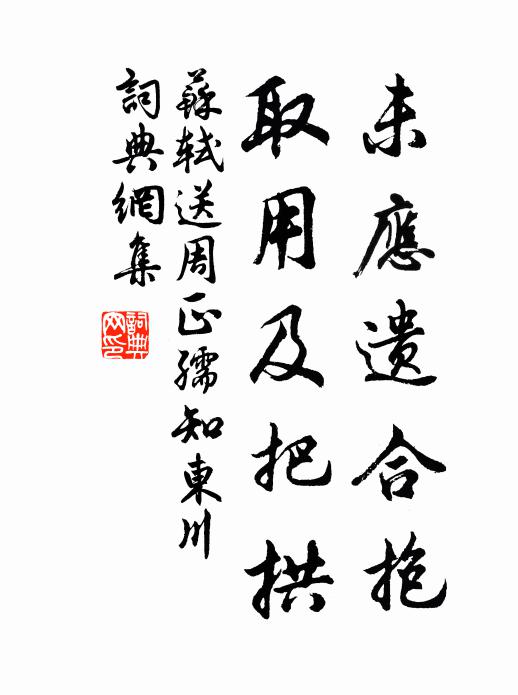 未應遺合抱
取用及把拱
蘇軾送周正孺知東川
詞典網集
詞典
网印